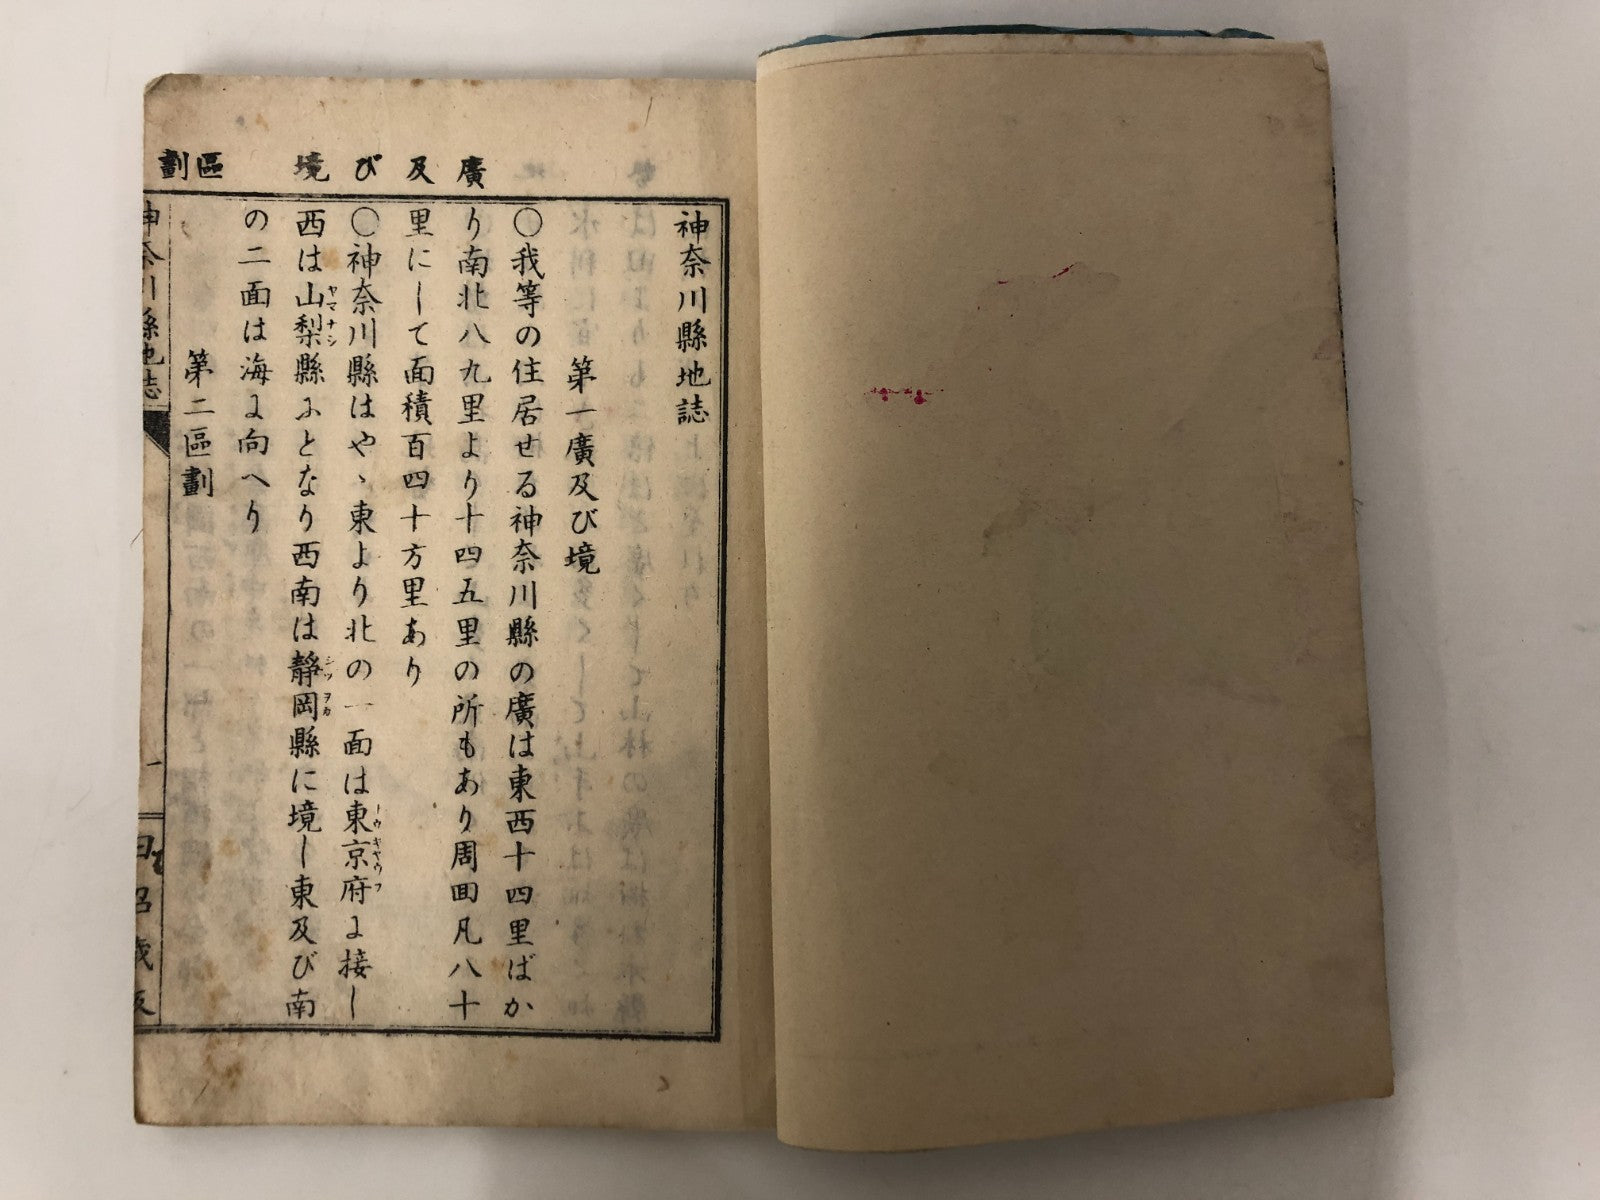 廣及び境
區劃
神奈川縣地誌
第一廣及び境
〇我等の住居せる神奈川縣の廣は東西十四里ばか
り南北八九里より十四五里の所もあり周囬凡八十
里にして面積百四十方里あり
〇神奈川縣はやゝ東より北の一面は東京府に接し
トウキヤウフ
西は山梨縣ふとなり西南は静岡縣に境し東及び南
ヤマナシ
シヅヲカ
の二面は海に向へり
第二區劃
神奈川縣地誌
一